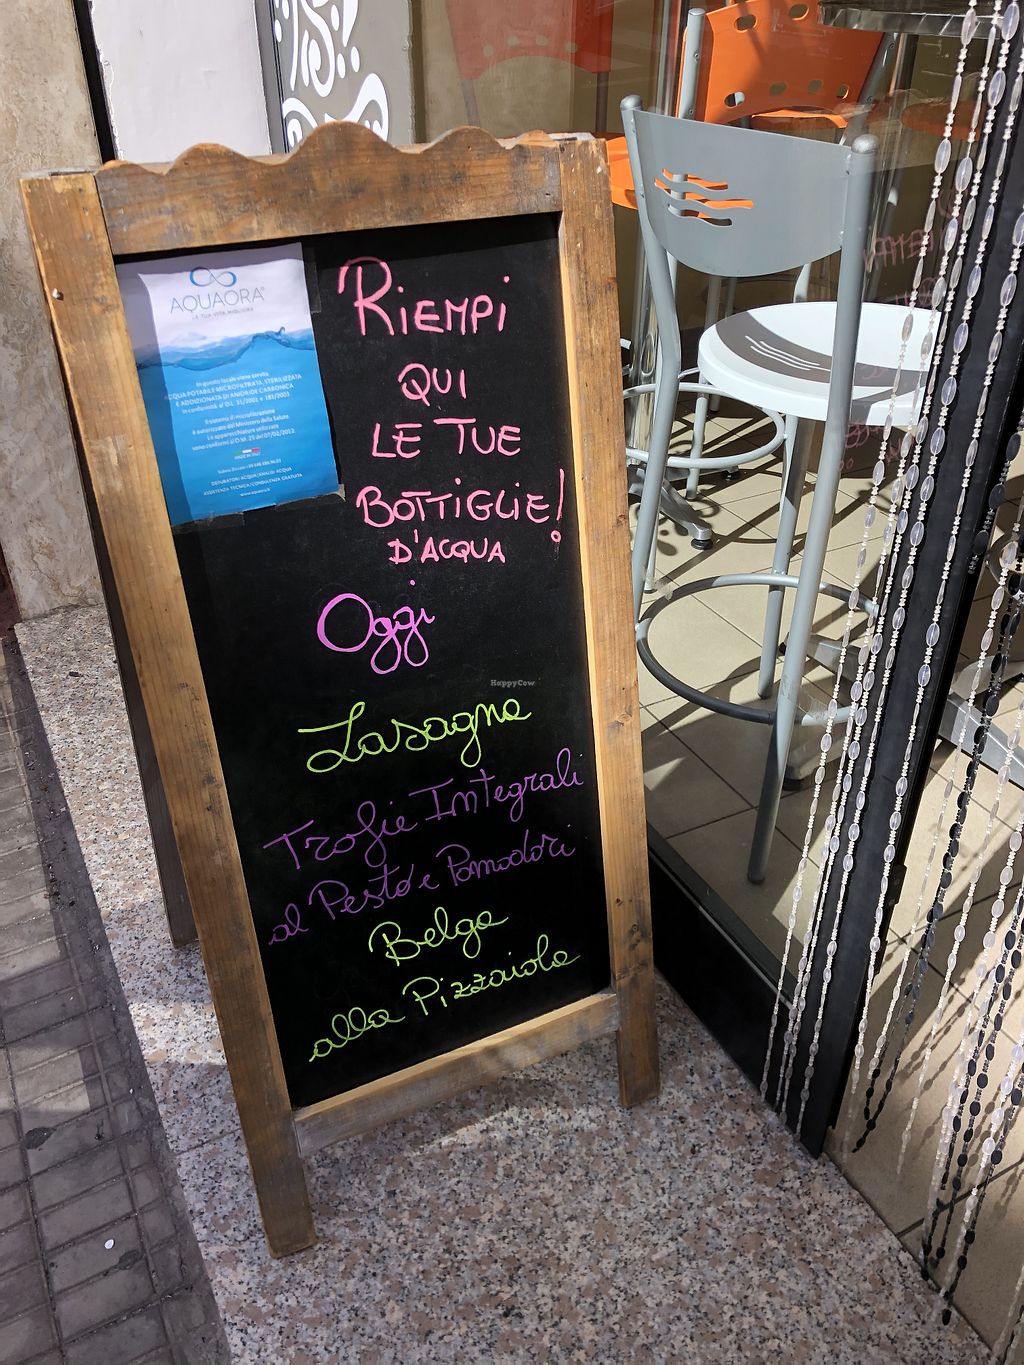 AQUAORA
LA TUA VITA MIGLIORA
In questo locale viene servita
ACQUA POTABILE MICROFILTRATA, STERILIZZATA
E ADDIZIONATA DI ANIDRIDE CARBONICA
in conformità al D.L. 31/2001 e 181/2003
Il sistema di microfiltrazione
è autorizzato dal Ministero della Salute
Le apparecchiature utilizzate
sono conformi al D.M. 25 del 07/02/2012.
MADE IN ITALY
DEPURATORI ACQUA/ANALISI ACQUA
ASSISTENZA TECNICA/CONSULENZA GRATUITA
www.aquaora.it
RIEMPI
QUI
LE TUE
BOTTIGLIE!
D'ACQUA
Oggi
HappyCow
Lasagne
Trofie Integrali
al Pesto e Pomodori
Belga
alla Pizzaiola